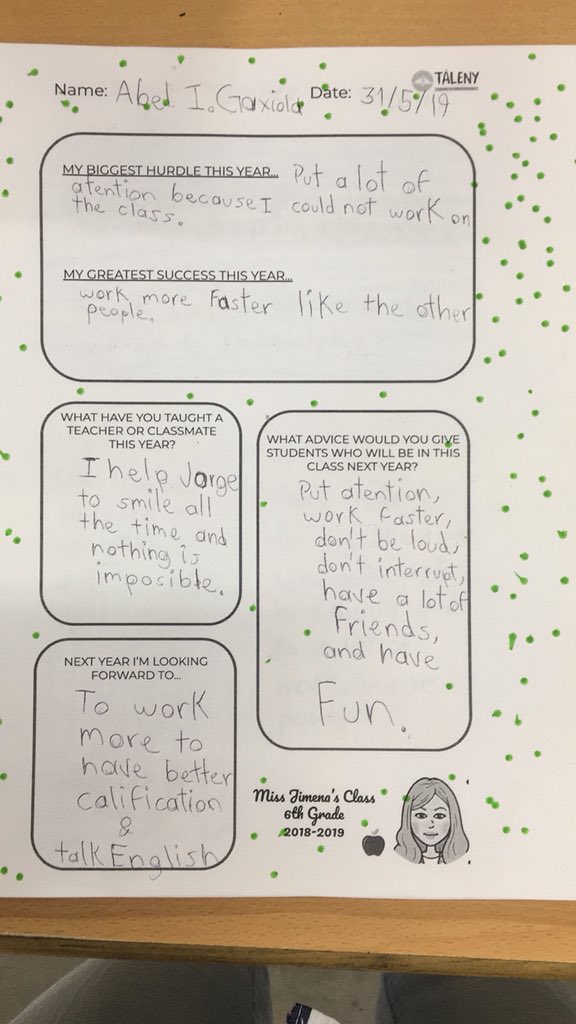 TĀLENY
Name: Abel I. Gaxiola Date: 31/5/19
MY BIGGEST HURDLE THIS YEAR... Put a lot of
atention because I could not work on
the class.
MY GREATEST SUCCESS THIS YEAR...
work more Faster like the other
people.
WHAT HAVE YOU TAUGHT A
TEACHER OR CLASSMATE
THIS YEAR?
I help Jorge
to smile all
the time and
nothing is
imposible.
WHAT ADVICE WOULD YOU GIVE
STUDENTS WHO WILL BE IN THIS
CLASS NEXT YEAR?
Put atention,
work faster,
don't be loud,
don't interrupt,
have a lot of
Friends,
and have
Fun.
NEXT YEAR I'M LOOKING
FORWARD TO...
To work
more to
have better
calification
&
talk English
Miss Jimena's Class
6th Grade
2018-2019